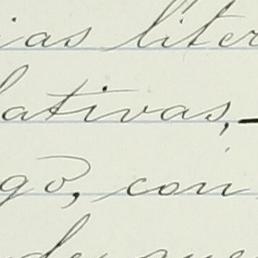 ias liter
lativas, -
go, con